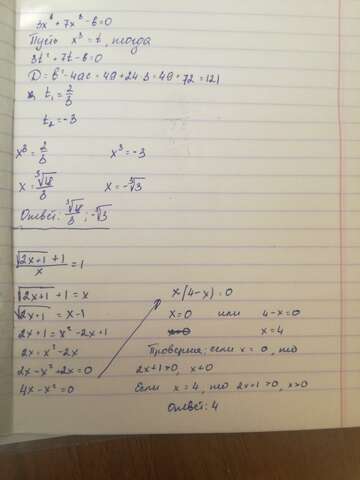 3x⁶ + 7x³ - 6 = 0
Пусть x³ = t, тогда
3t² + 7t - 6 = 0
D = b² - 4ac = 49 + 24·3 = 49 + 72 = 121
t₁ = 2/3
t₂ = -3
x³ = 2/3
x³ = -3
x = ∛18/3
x = -∛3
Ответ: ∛18/3 ; -∛3
(√(2x+1) + 1)/x = 1
√(2x+1) + 1 = x
√(2x+1) = x - 1
2x + 1 = x² - 2x + 1
2x = x² - 2x
2x - x² + 2x = 0
4x - x² = 0
x(4-x) = 0
x = 0 или 4 - x = 0
x = 4
Проверка: если x = 0, то
2x+1 > 0, x ≠ 0
Если x = 4, то 2x+1 > 0, x > 0
Ответ: 4